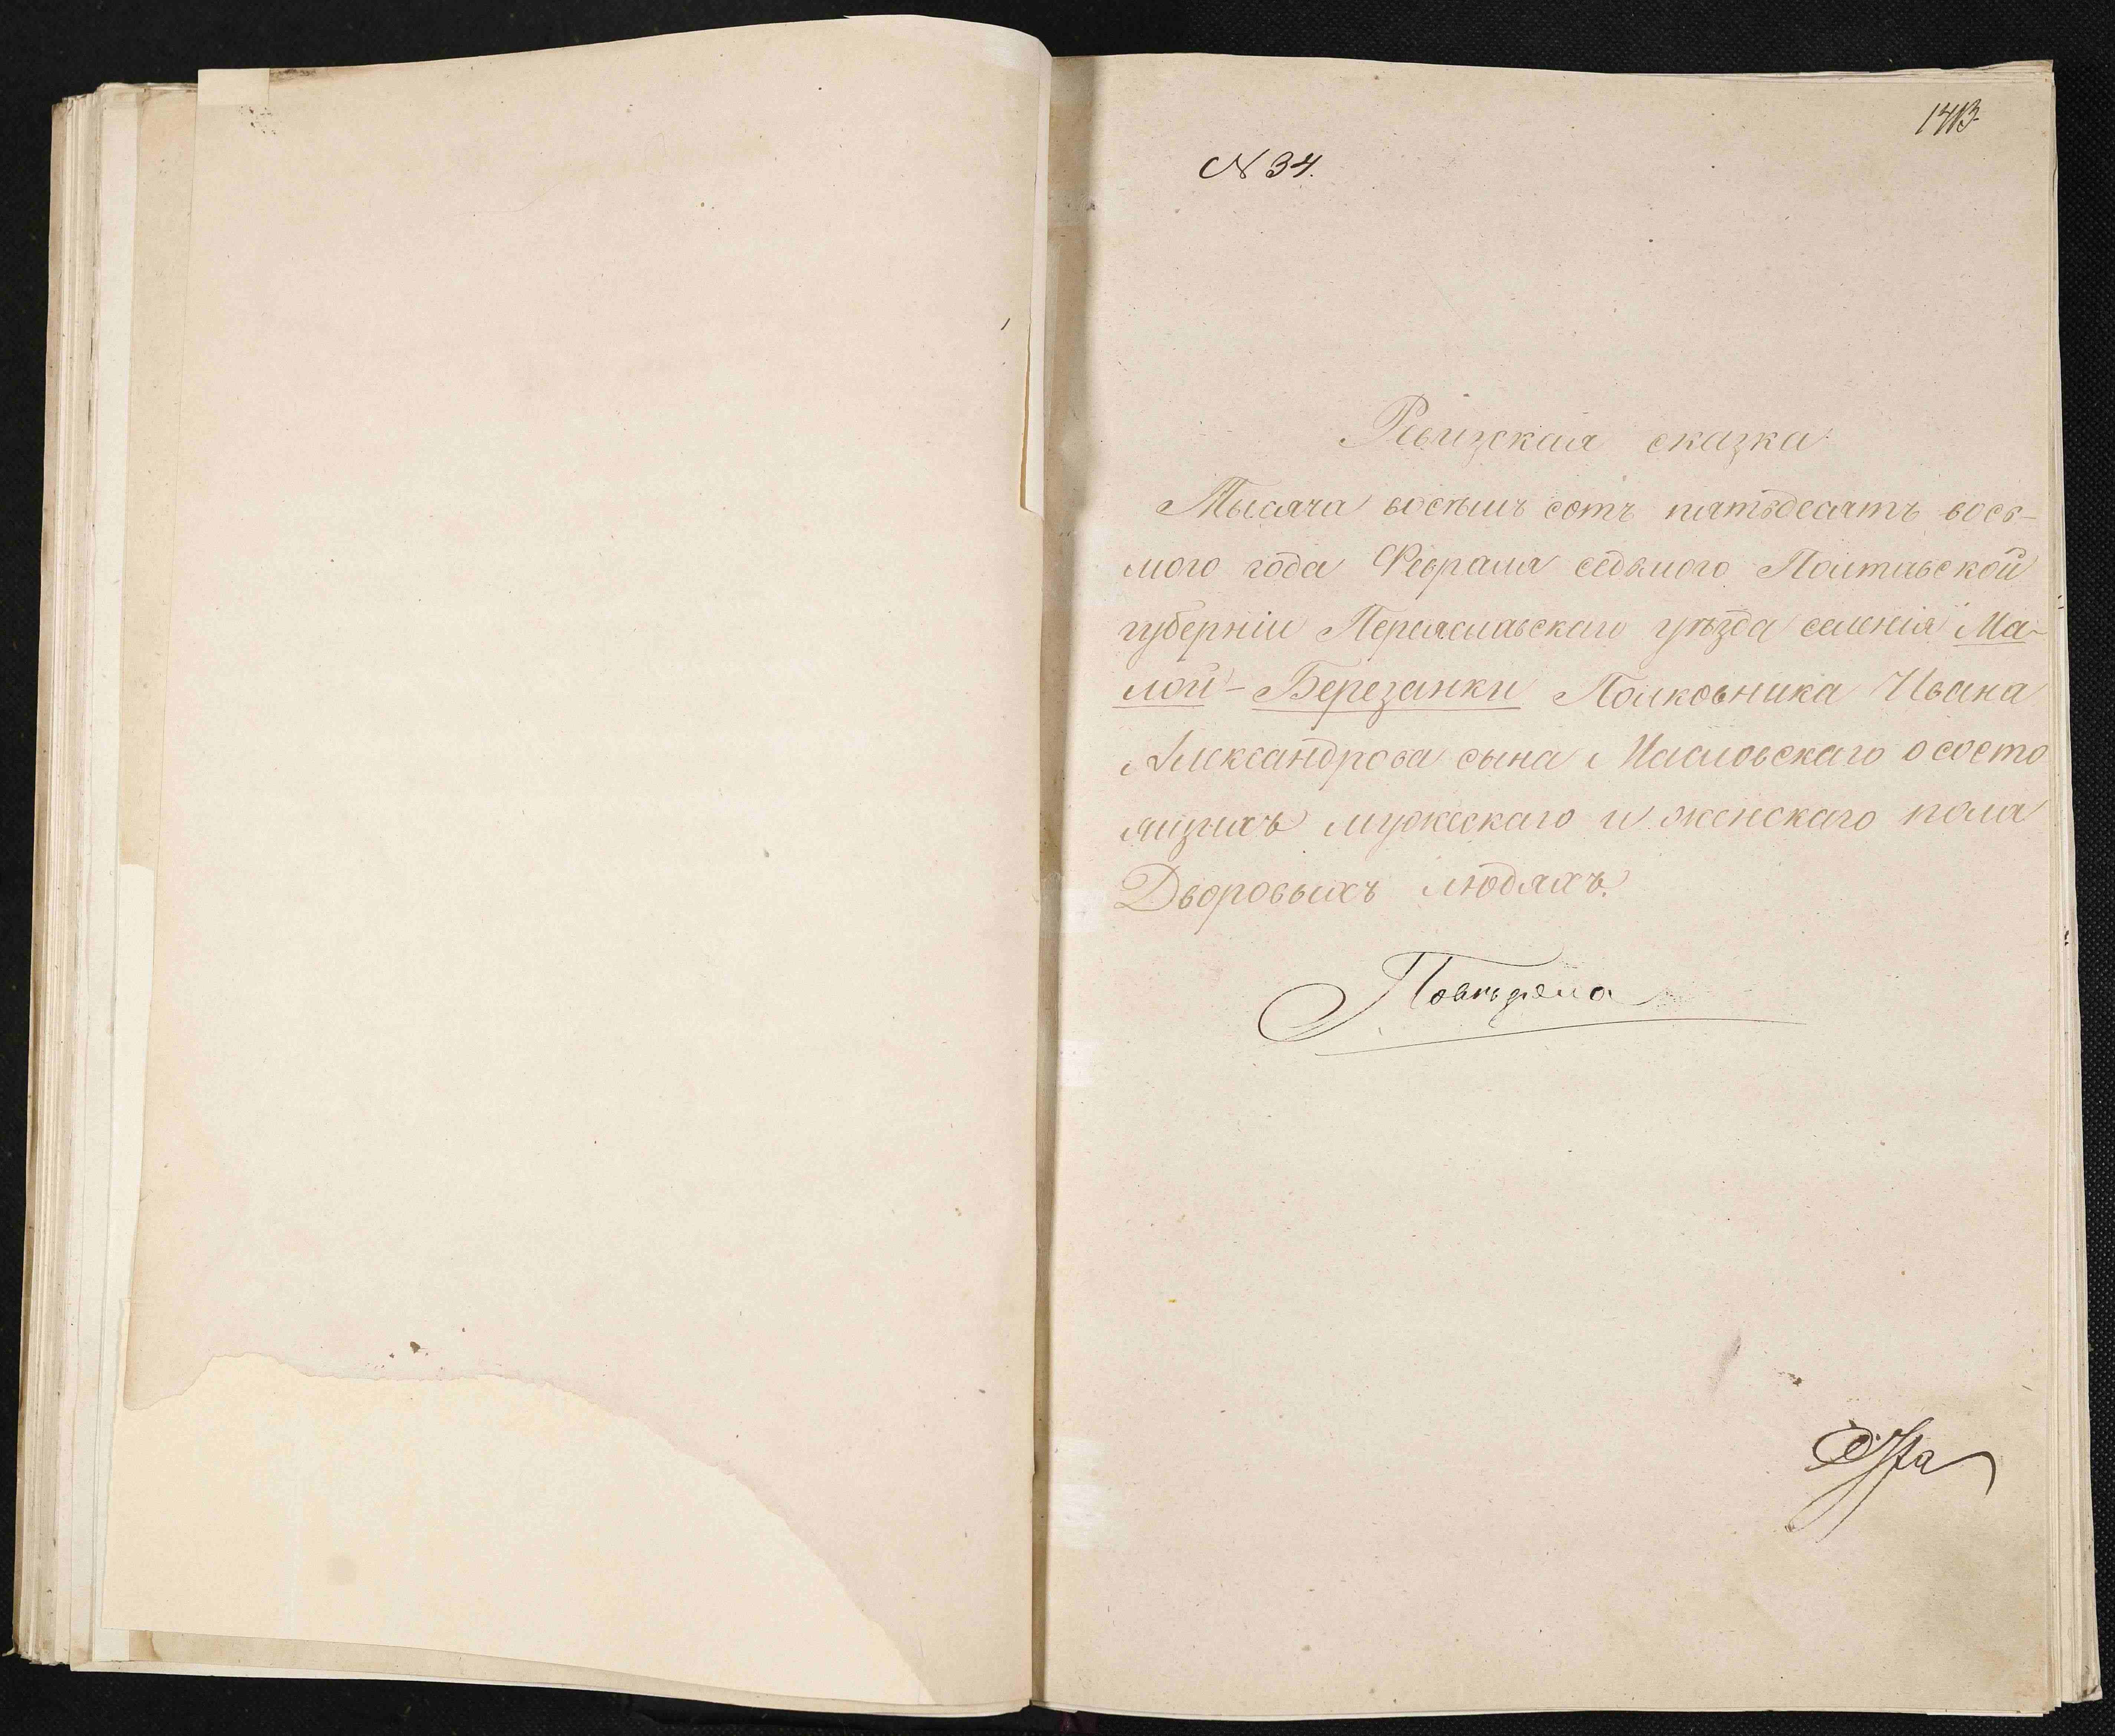 № 34.
Ревизская сказка
Тысяча восемь сотъ пятьдесятъ вось-
мого года Февраля седьмого Полтавской
губерніи Переяславскаго уѣзда селенія Ма-
лой-Березанки Полковника Ивана
Александрова сына Масловскаго о состо
ящихъ мужескаго и женскаго пола
Дворовыхъ людяхъ.
Повѣрена